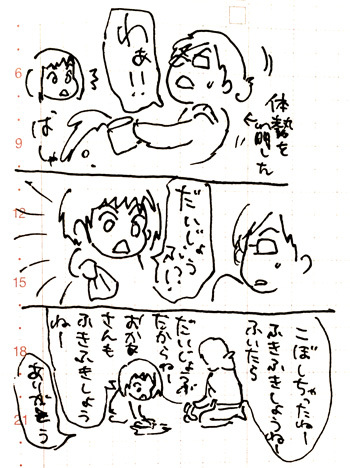 体勢を
崩した
わぁ!!
ばしゃ
だいじょ
うぶ!?
こぼしちゃたねー
ふきふきしようねー
ふいたら
だいじょぶ
だからねー
おかあ
さんも
ふきふきしよう
ねー
ありがとう
6
9
12
15
18
21